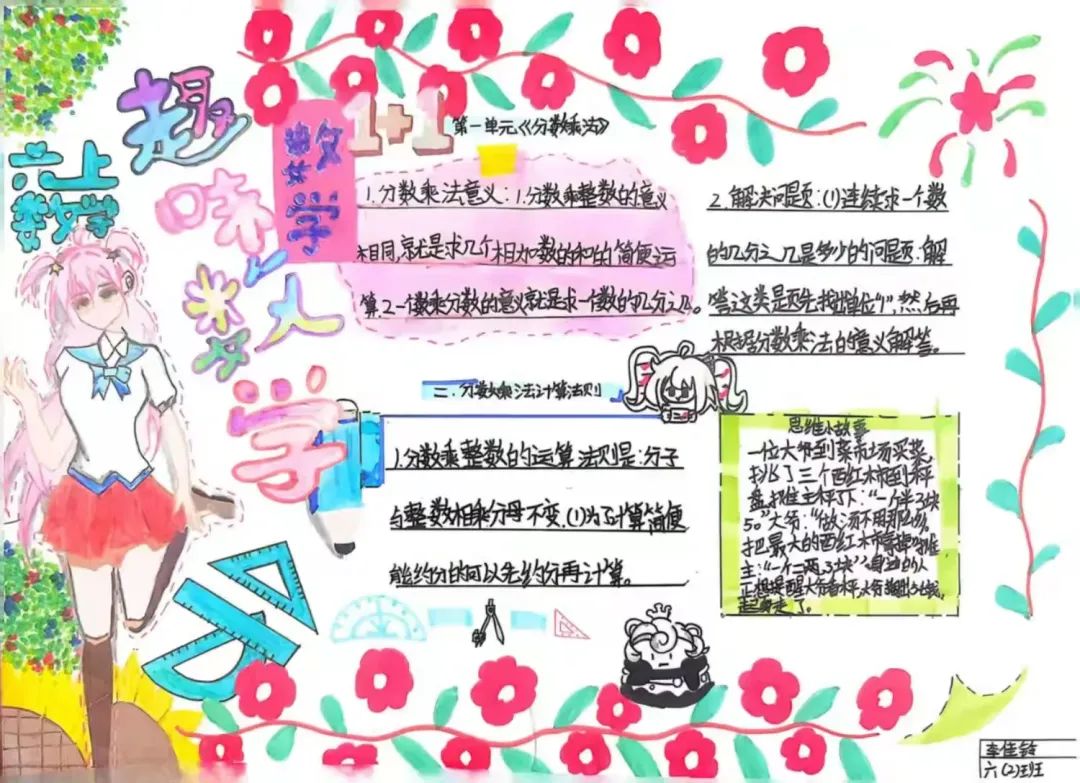 六上
数学
趣
味
数
学
数学
1+1
第一单元《分数乘法》
1.分数乘法意义：1.分数乘整数的意义
相同,就是求几个相加数的和的简便运
算.2.一个数乘分数的意义就是求一个数的几分之几。
2.解决问题：(1)连续求一个数
的几分之几是多少的问题.解
答这类是题先找单位"1",然后再
根据分数乘法的意义解答。
二.分数乘法计算法则
1.分数乘整数的运算法则是:分子
与整数相乘分母不变.(1)为了计算简便
能约分的可以先约分再计算。
思维小故事
一位大爷到菜市场买菜,
挑了三个西红柿到秤
盘,摊主秤下:"一个半3块
5"大爷:"做汤不用那么多,
把最大的西红柿拿掉"摊
主:"一个二两,3块",身边的人
正想提醒大爷看秤,大爷
走了。
六(2)班